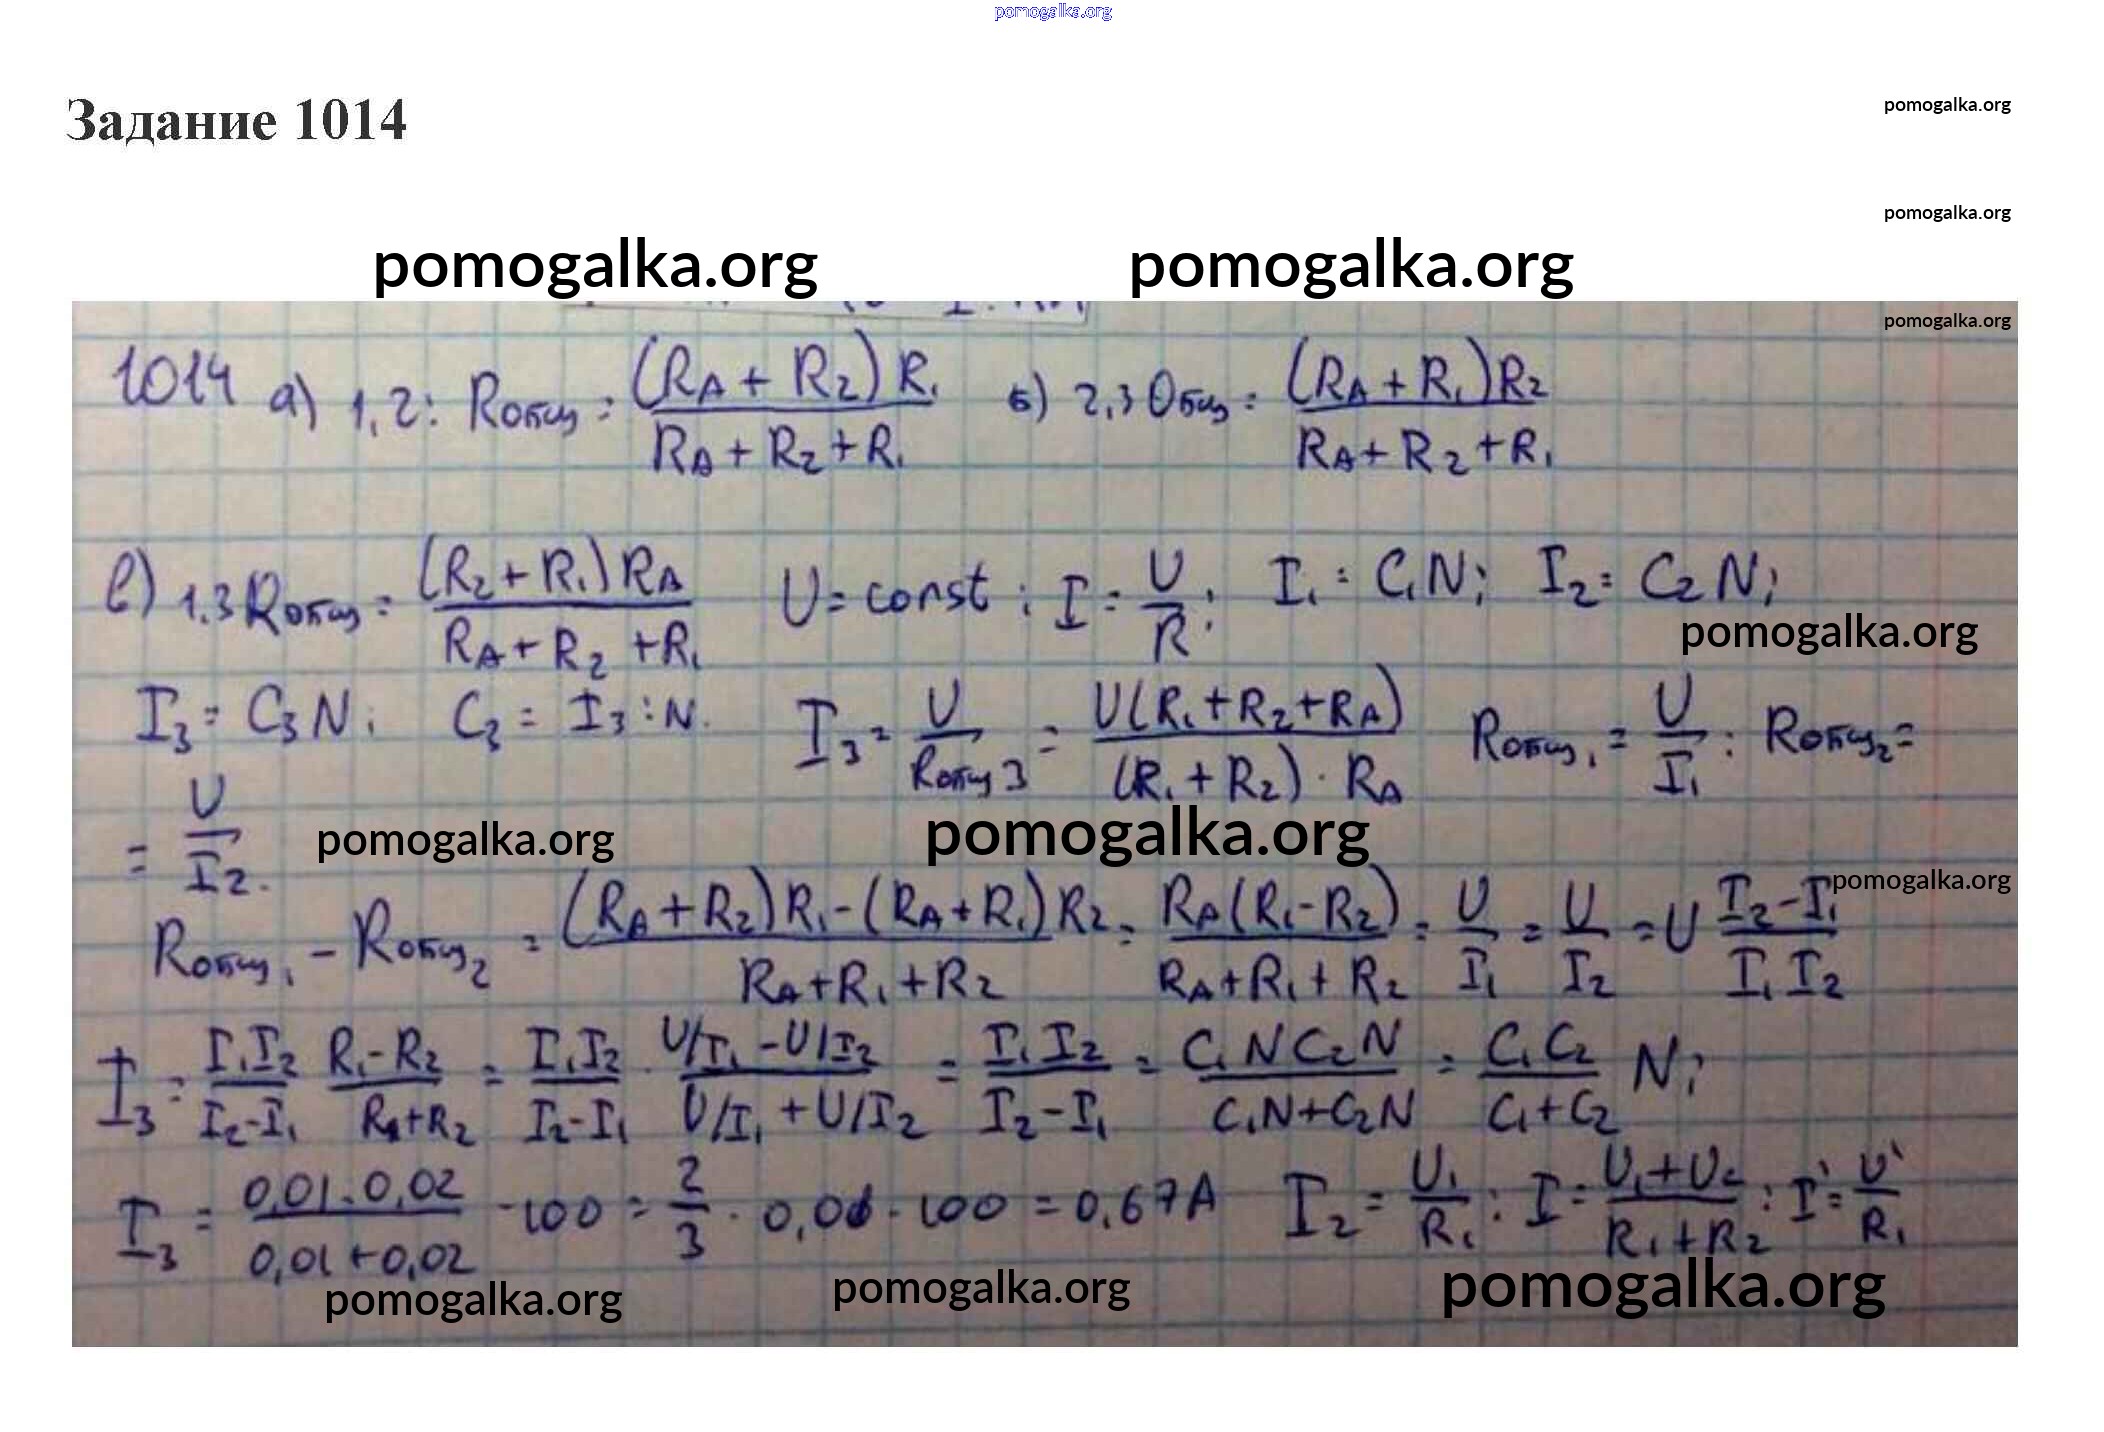 pomogalka.org
Задание 1014
pomogalka.org
pomogalka.org
pomogalka.org pomogalka.org
pomogalka.org
1014 а) 1,2: Rобщ = (RA + R2) R1 / RA + R2 + R1 б) 2,3 Общ = (RA + R1) R2 / RA + R2 + R1
в) 1.3 Rобщ = (R2 + R1) RA / RA + R2 + R1 U = const ; I = U / R ; I1 = C1N; I2 = C2N;
pomogalka.org
I3 = C3N; C3 = I3 : N. I3 = U / Rобщ3 = U(R1 + R2 + RA) / (R1 + R2) · RA Rобщ1 = U / I1 : Rобщ2 =
= U / I2.
pomogalka.org pomogalka.org
pomogalka.org
Rобщ1 − Rобщ2 = (RA + R2) R1 − (RA + R1) R2 / RA + R1 + R2 = RA (R1 − R2) / RA + R1 + R2 = U / I1 = U / I2 = U I2 − I1 / I1 I2
I3 = I1 I2 / I2 − I1 R1 − R2 / R1 + R2 = I1 I2 / I2 − I1 · U/I1 − U/I2 / U/I1 + U/I2 = I1 I2 / I2 − I1 = C1 N C2 N / C1N + C2N = C1 C2 / C1 + C2 N;
I3 = 0,01 · 0,02 / 0,01 + 0,02 · 100 = 2 / 3 · 0,01 · 100 = 0,67 А I2 = U1 / R1 : I = U1 + U2 / R1 + R2 : I' = U' / R1
pomogalka.org pomogalka.org pomogalka.org